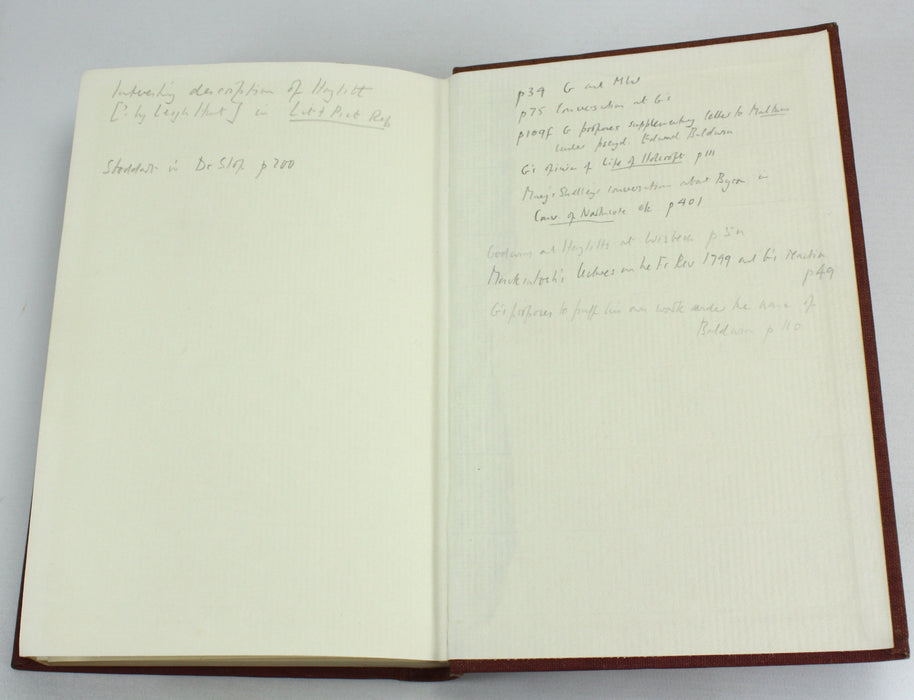 Interesting description of Hazlitt
[? by Leigh Hunt] in Lit & Pict Rep
Stoddart in Dr Slop p 200
p 39 G and MW
p 75 Conversation at G's
p 109f G proposes supplementary letter to Malthus
under pseud. Edward Baldwin
G's opinion of Life of Holcroft p 111
Mary Shelley's conversation about Byron in
Conv of Northcote etc p 401
Godwins at Hazlitts at Wisbech p 5n
Mackintosh's lectures on the Fr Rev 1799 and G's reaction
p 49
G's proposes to puff his own work under the name of
Baldwin p 110